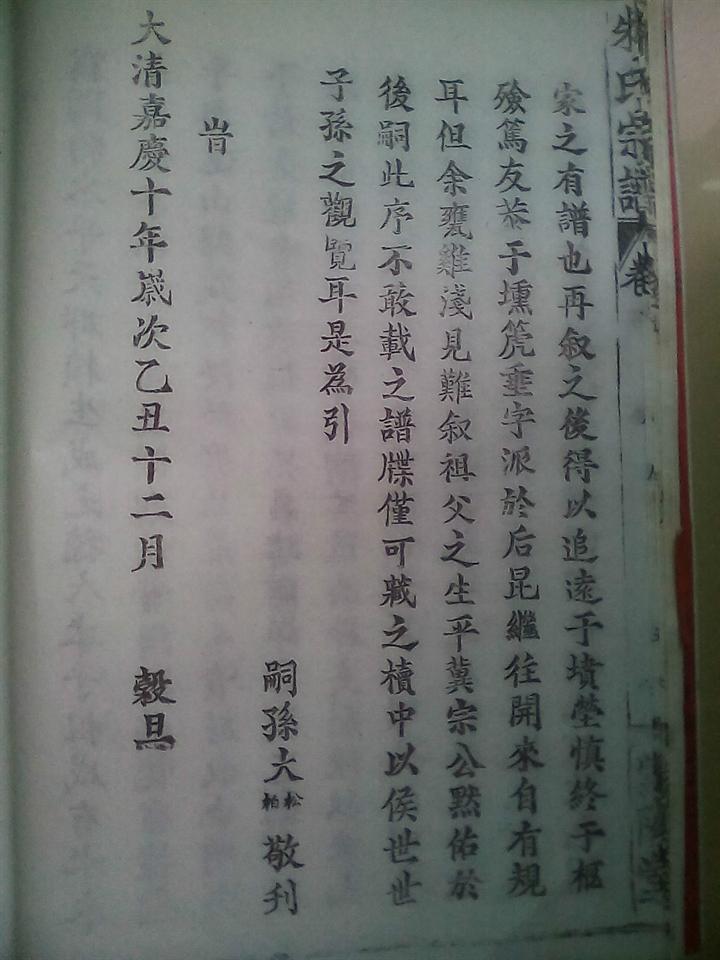 氏宗譜 卷
家之有譜也再叙之後得以追遠于墳塋慎終于柩
殮篤友恭于壎箎垂字派於后昆繼往開來自有規
耳但余甕雞淺見難叙祖父之生平冀宗公黙佑於
後嗣此序不敢載之譜牒僅可藏之櫝中以侯世世
子孫之觀覽耳是為引
嗣孫大松柏敬刋
旹
大清嘉慶十年嵗次乙丑十二月 穀旦